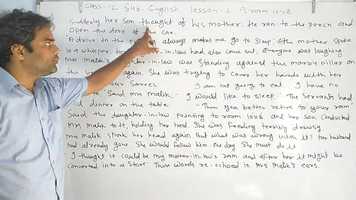 Class-12 Sub-English lesson-2 A room 10x8
Suddenly her son thought of his mother. He ran to the porch and
Open the door of the car
A drive in the always makes me go to sleep. The mother spoke
in a whisper in-law had also come out. Everyone was laughing
Mrs Malik's daughter-in-law was standing against the marble pillar on
the again. She was trying to cover her hands with her
Saree. I am not going to eat. I have no
Said Mrs Malik. I would like to sleep. The servants had
laid dinner on the table. Then you better retire to your room
Said the daughter-in-law pointing to room 10x8 and her son conducted
Mrs Malik to it, holding her hand. She was feeling terribly drowsy
Mrs Malik shook her head again. But what was wrong with it? Her husband
had already gone. She would follow him one day. She must do it
I thought it could be my mother-in-law's room and after her it might be
converted into a store. These words re-echoed in Mrs Malik's ears.